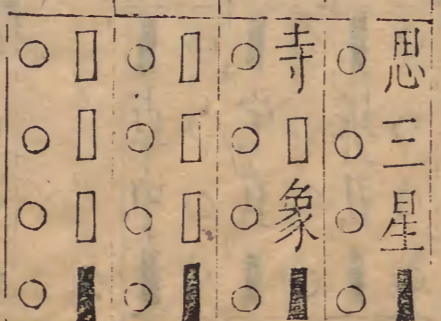 思三星▮
○○○○
寺□象▮
○○○○
□□□▮
○○○○
□□□▮
○○○○